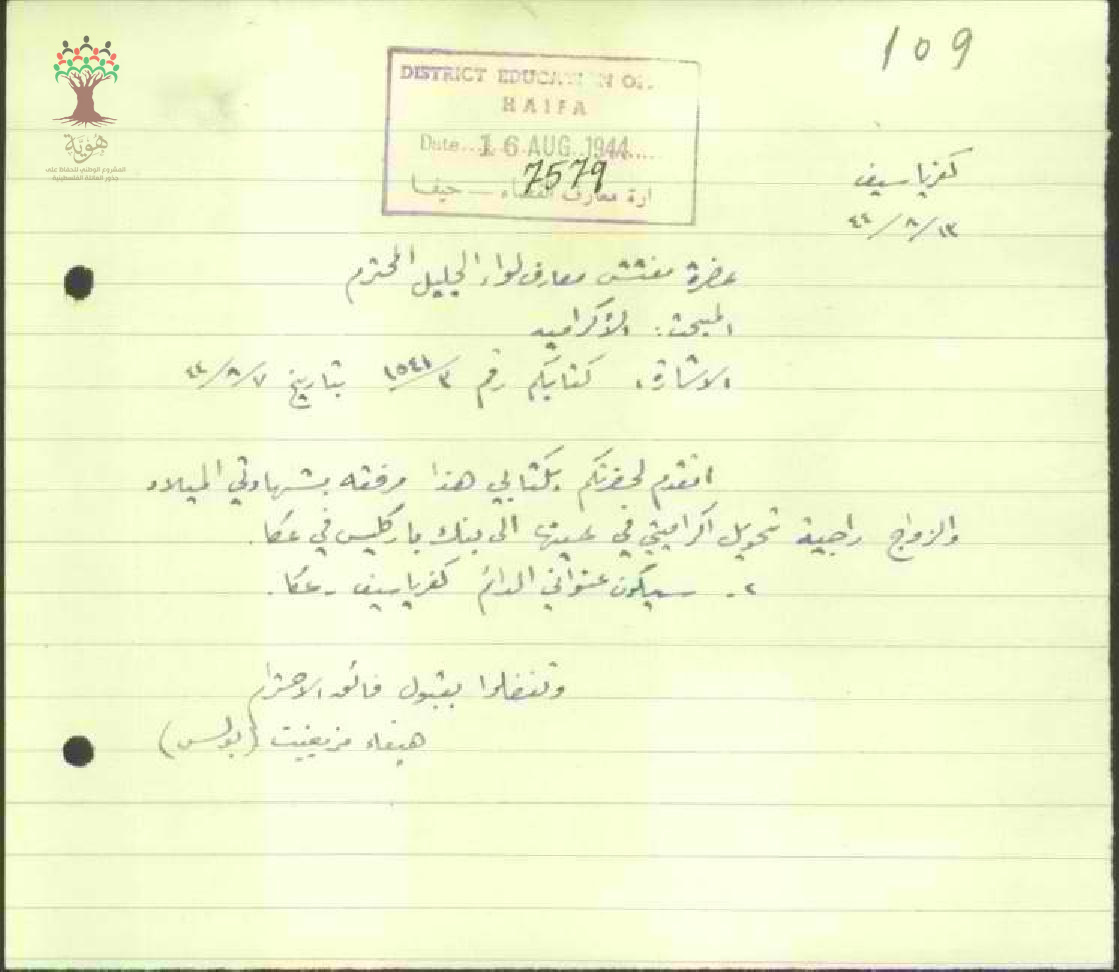 109
هُوِيَّة
المشروع الوطني للحفاظ على
جذور العائلة الفلسطينية
DISTRICT EDUCATION OF
HAIFA
Date 16 AUG 1944
7579
ارة معارف القضاء — حيفا
كفرياسيف
١٣/٨/٤٤
حضرة مفتش معارف لواء الجليل المحترم
المبحث: الاكرامية
الاشارة: كتابكم رقم بتاريخ ٧/٨/٤٤
اتقدم لحضرتكم بكتابي هذا مرفقه بشهادتي الميلاد
والزواج راجية تحويل اكراميتي في حينها الى بنك باركليس في عكا.
٢. سيكون عنواني الدائم كفرياسيف - عكا.
وتفضلوا بقبول فائق الاحترام
هيفاء (بولس)